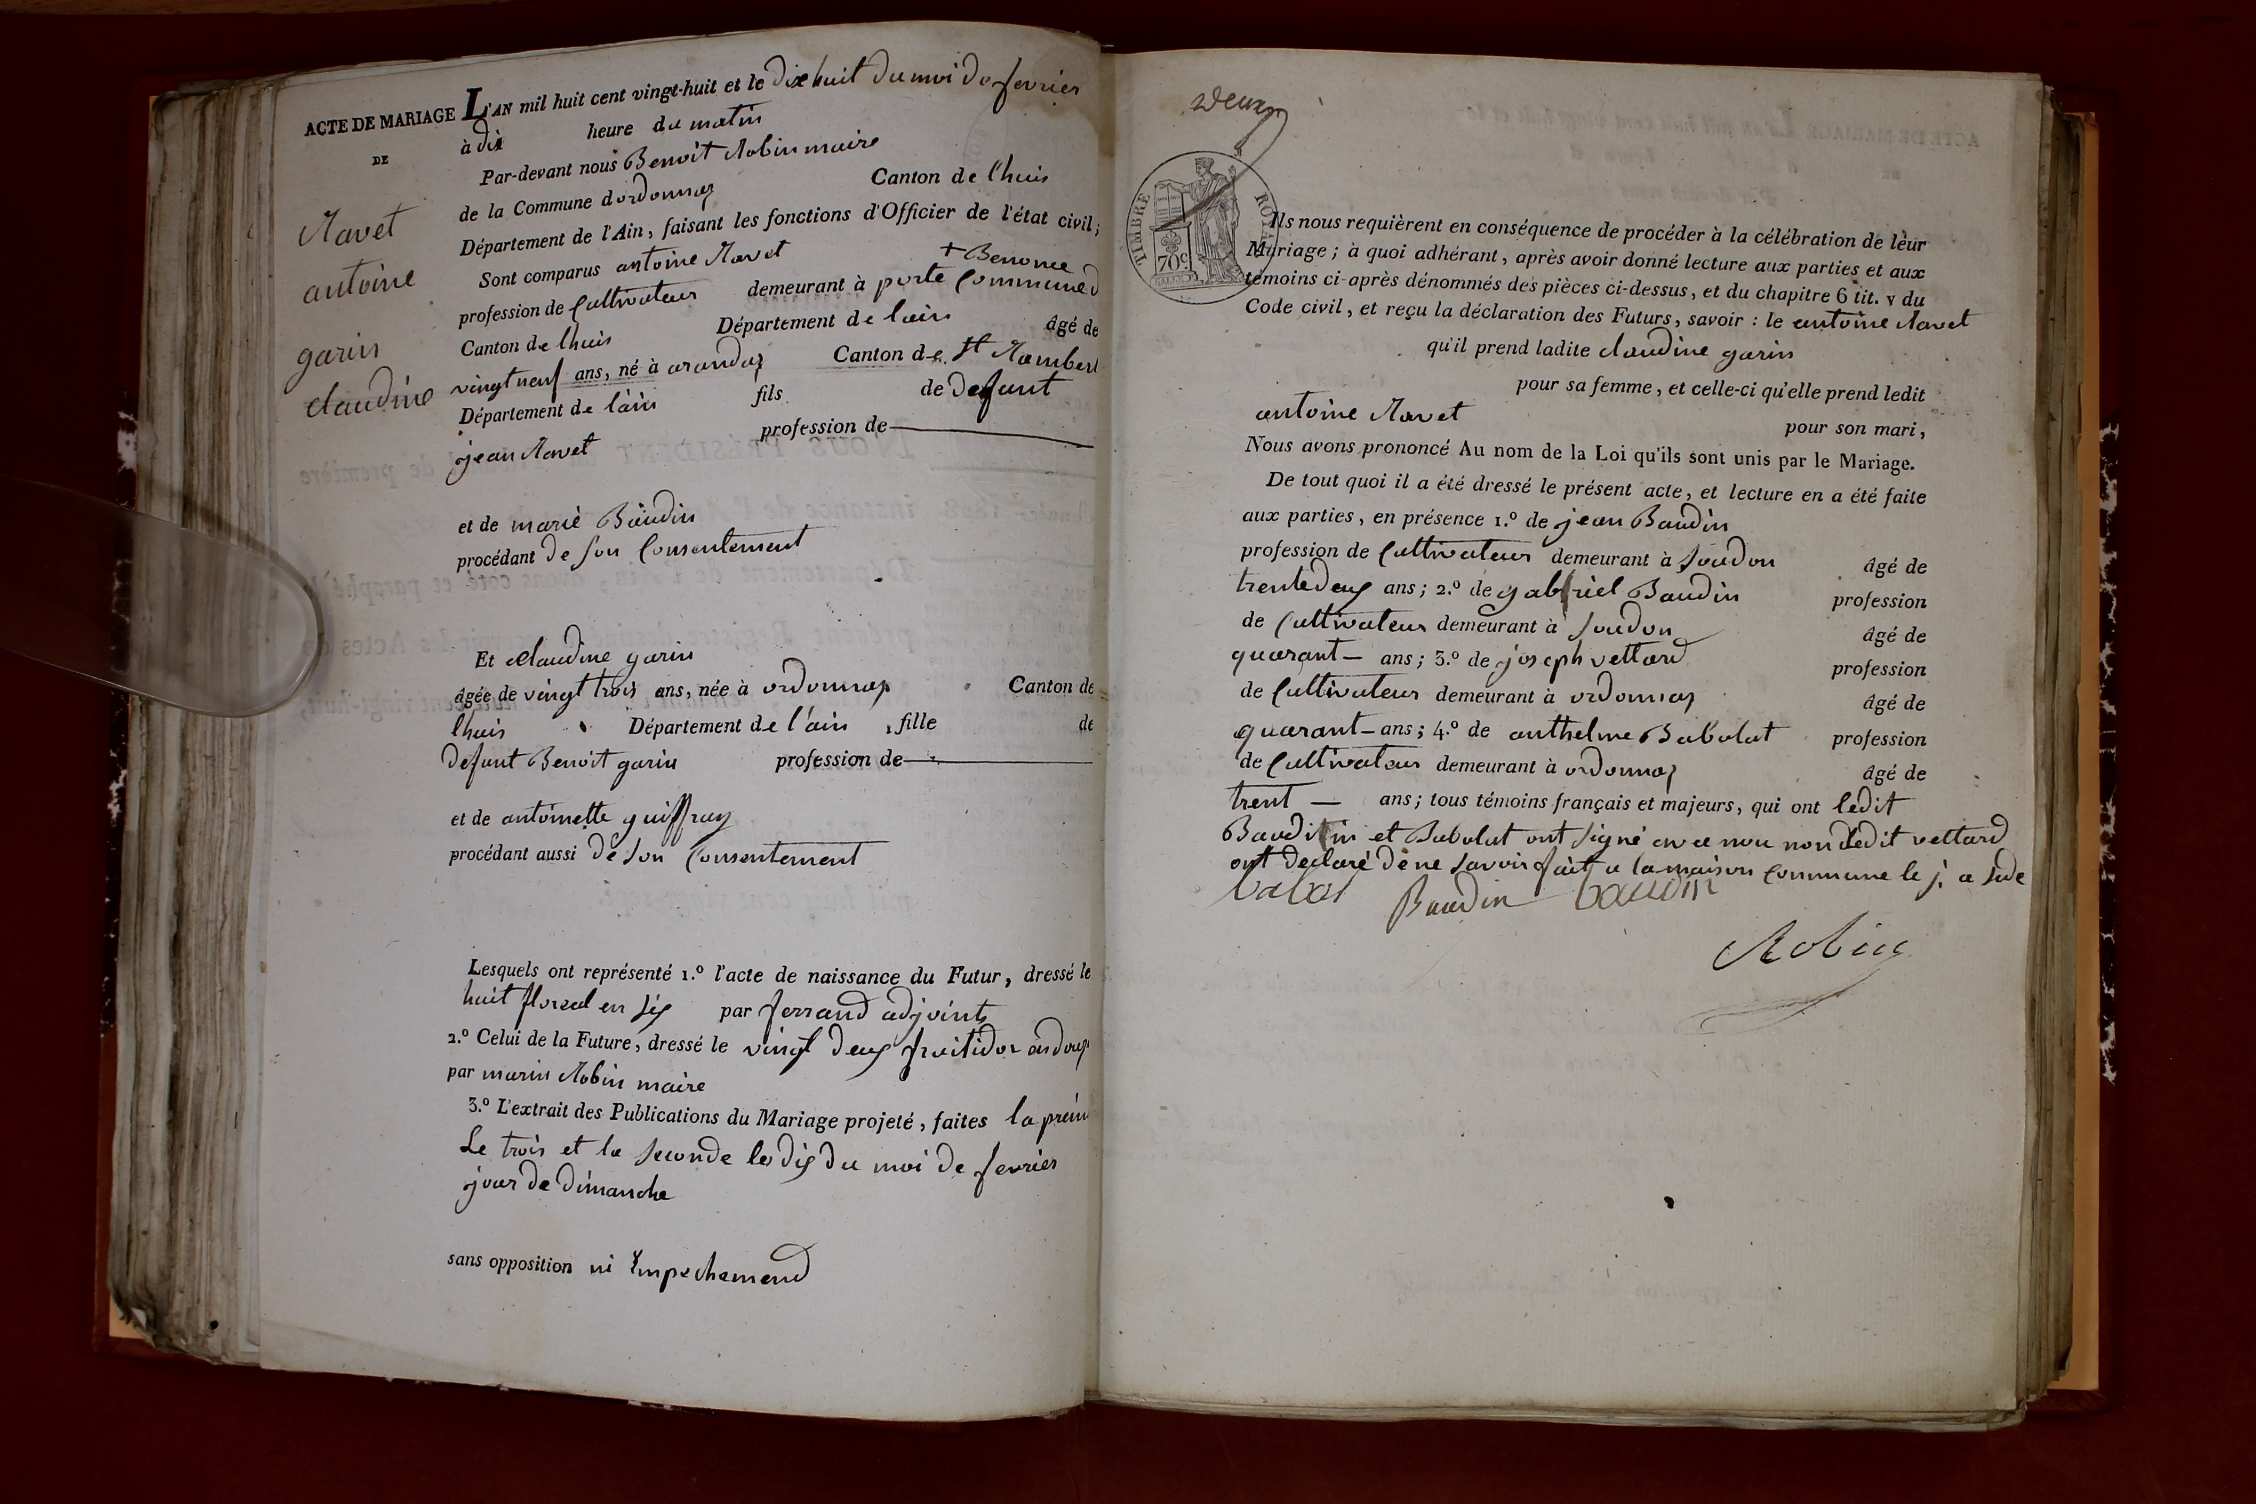 ACTE DE MARIAGE
DE
Ravet
antoine
garin
claudine
L'AN mil huit cent vingt-huit et le dix huit du moi de fevrier
à dix heure du matin
Par-devant nous Benoit Robin maire
de la Commune dordonnaz Canton de lhuis
Département de l'Ain, faisant les fonctions d'Officier de l'état civil;
Sont comparus antoine Ravet + Benonce
profession de Cultivateur demeurant à porte Commune d
Canton de lhuis Département de lain âgé de
vingt neuf ans, né à arandaz Canton de St Rambert
Département de lain fils de defunt
jean Ravet profession de
et de marie Baudin
procédant de son Consentement
Et claudine garin
âgée de vingt trois ans, née à ordonnaz Canton de
lhuis Département de l'ain , fille de
defunt Benoit garin profession de
et de antoinette guiffray
procédant aussi de son Consentement
Lesquels ont représenté 1.º l'acte de naissance du Futur, dressé le
huit floreal en six par ferrand adjoint
2.º Celui de la Future, dressé le vingt deux fruitidor an douze
par marin Robin maire
3.º L'extrait des Publications du Mariage projeté, faites la prem
Le trois et la seconde le dix du moi de fevrier
jour de dimanche
sans opposition ni Empechemend
Deux
TIMBRE ROYAL
70c
Ils nous requièrent en conséquence de procéder à la célébration de leur
Mariage; à quoi adhérant, après avoir donné lecture aux parties et aux
témoins ci-après dénommés des pièces ci-dessus, et du chapitre 6 tit. v du
Code civil, et reçu la déclaration des Futurs, savoir : le antoine Ravet
qu'il prend ladite claudine garin
pour sa femme, et celle-ci qu'elle prend ledit
antoine Ravet pour son mari,
Nous avons prononcé Au nom de la Loi qu'ils sont unis par le Mariage.
De tout quoi il a été dressé le présent acte, et lecture en a été faite
aux parties, en présence 1.º de jean Baudin
profession de Cultivateur demeurant à soudon âgé de
trentedeux ans; 2.º de gabriel Baudin profession
de Cultivateur demeurant à soudon âgé de
quarant — ans; 3.º de joseph vettard profession
de Cultivateur demeurant à ordonnaz âgé de
quarant — ans; 4.º de anthelme Babolat profession
de Cultivateur demeurant à ordonnaz âgé de
trent — ans; tous témoins français et majeurs, qui ont ledit
Baudin et Babolat ont signé avec nou non ledit vettard
ont declaré de ne savoir fait a la maison Commune le j. a
Baudin baudin
Robin